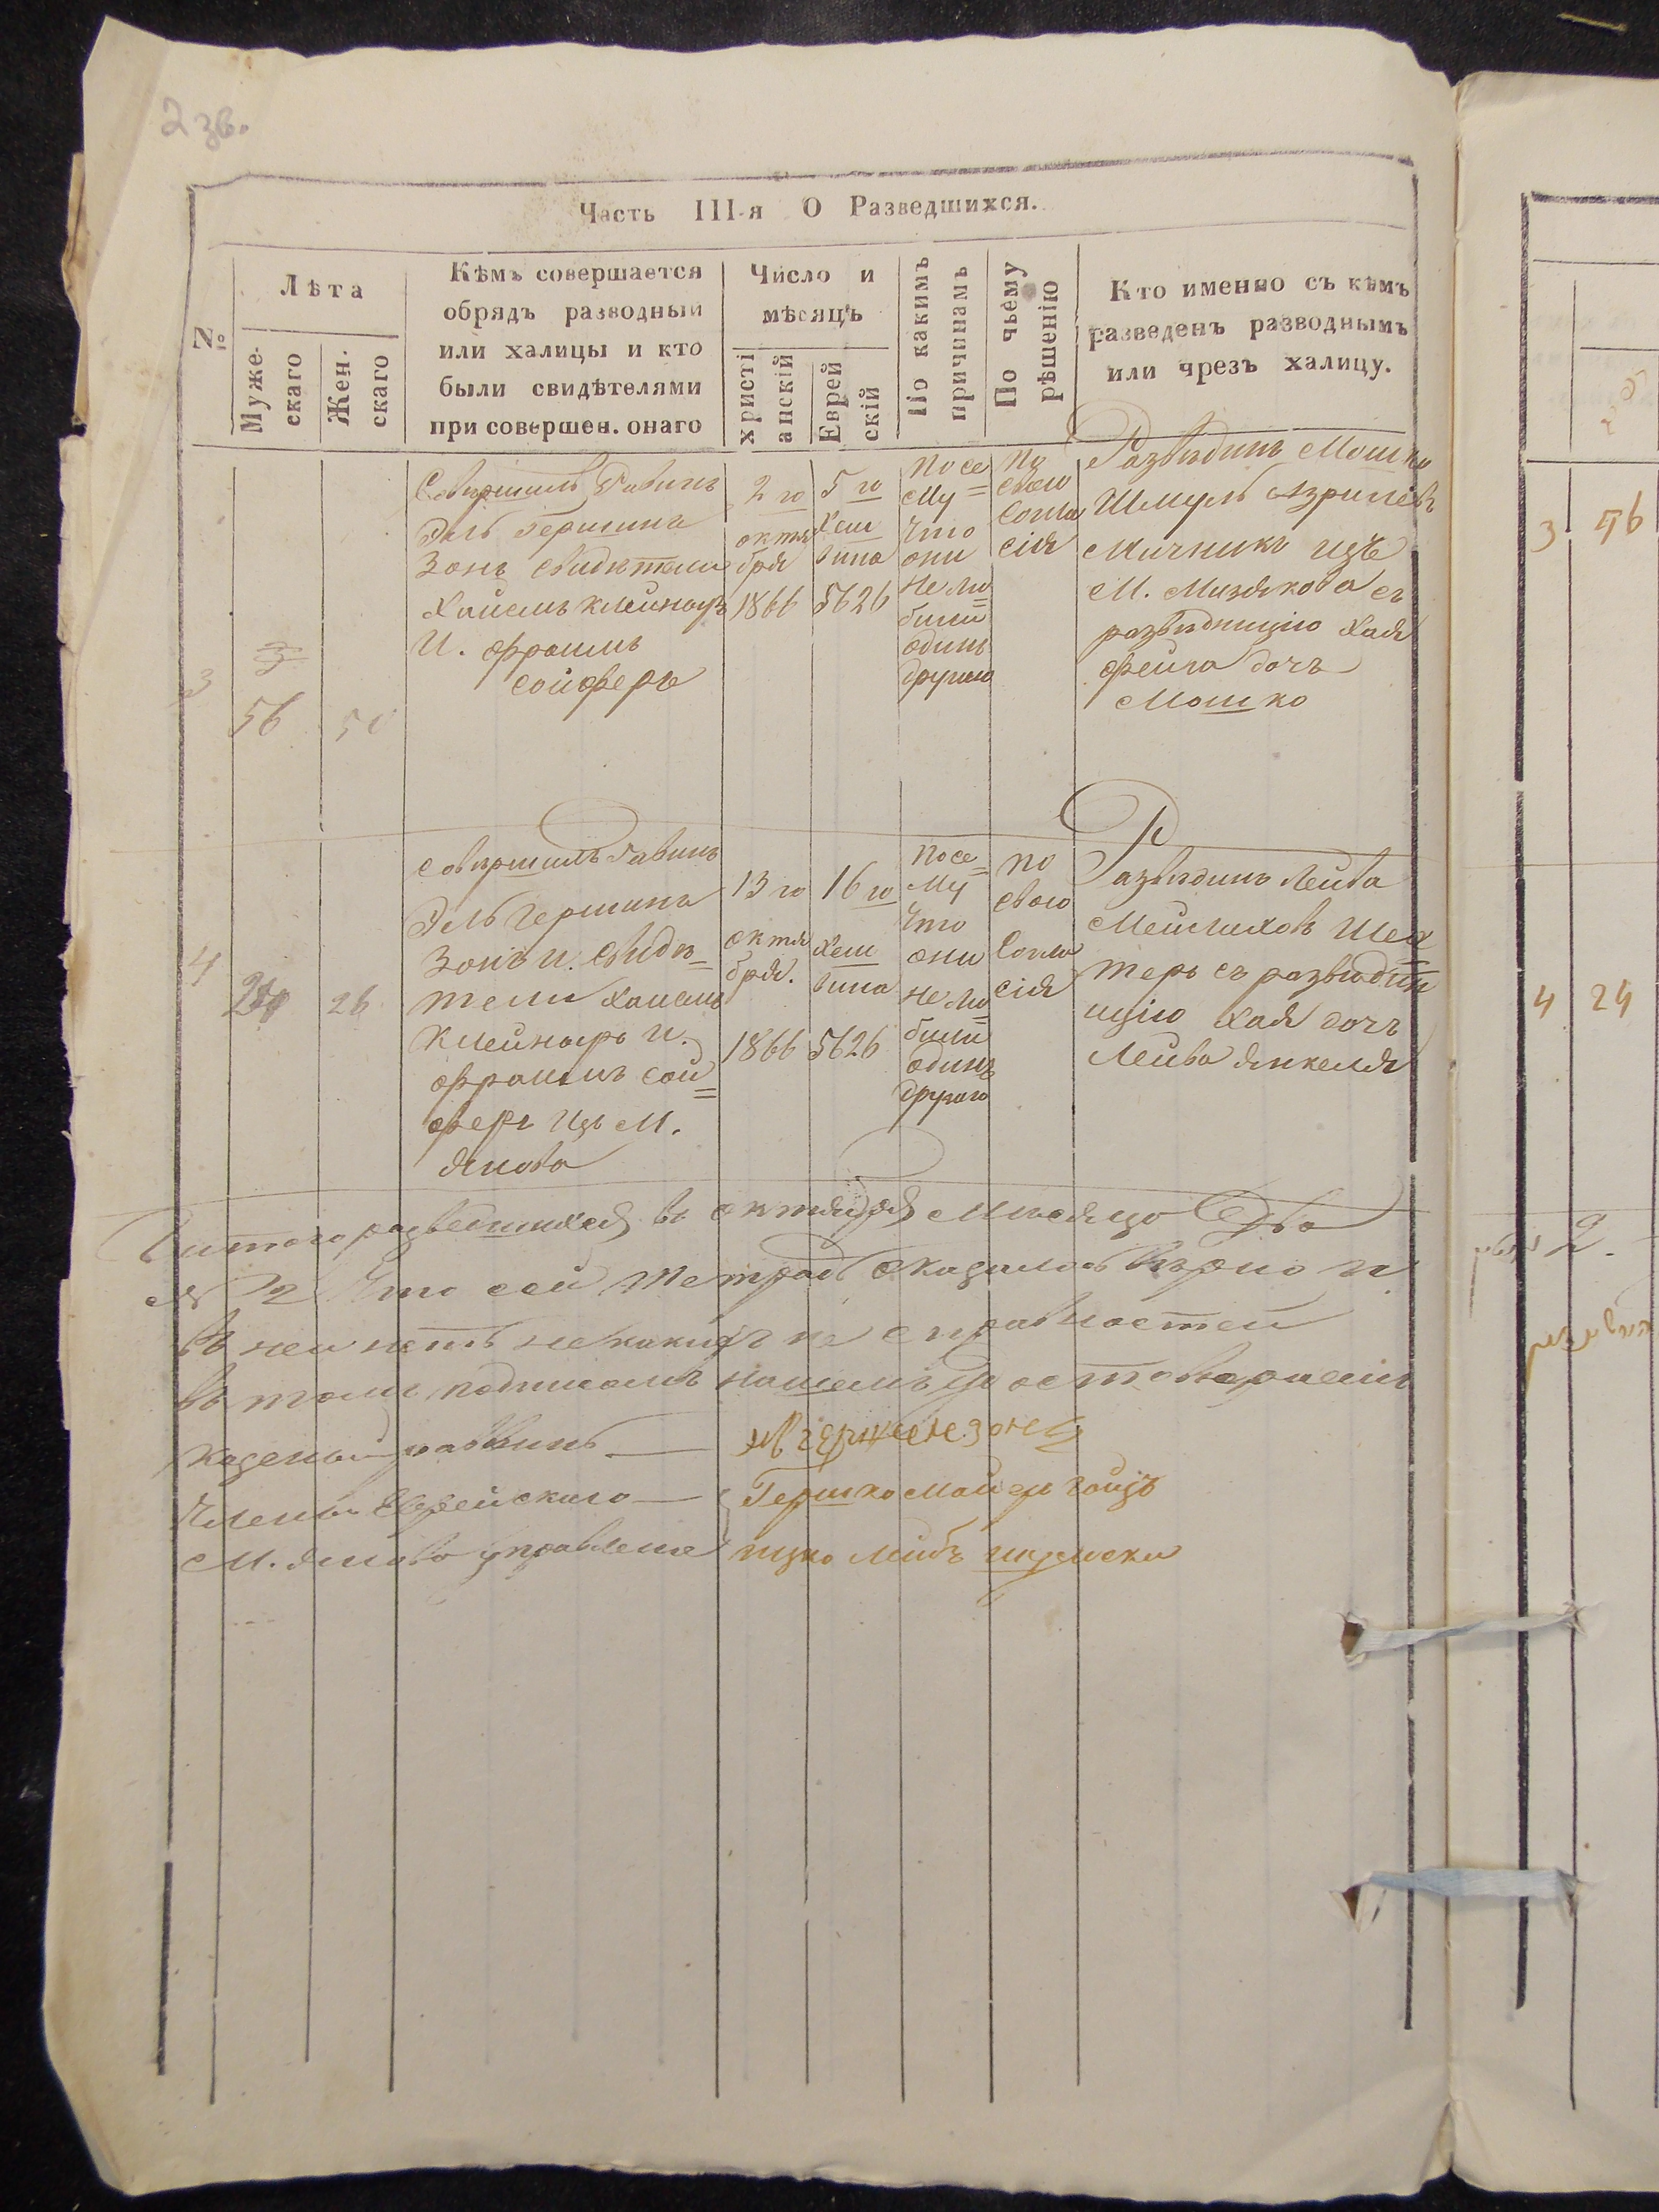 2 зв.
Часть III-я О Разведшихся.
№
Лѣта
Муже-
скаго
Жен.
скаго
Кѣмъ совершается
обрядъ разводный
или халицы и кто
были свидѣтелями
при совершен. онаго
Число и
мѣсяцъ
христі
анскій
Еврей
скій
По какимъ
причинамъ
По чьему
рѣшенію
Кто именно съ кѣмъ
разведенъ разводнымъ
или чрезъ халицу.
3
56
50
Совершилъ Равинъ
Эль Гершина
Зонъ свидѣтели
Хаимъ Клейнаръ
И. Фроимъ
Сойферъ
2 го
октя
бря
1866
5 го
Хеш
вина
5626
Посе
му
что
они
не лю
били
одинъ
другаго
По
свою
согла
сія
Развединъ Мошко
Шмуль Азрилевъ
Мичникъ изъ
М. Мизякова съ
разведницію Хая
Фейга дочъ
Мошко
4
26
совершилъ Равинъ
Эль Гершина
Зонъ и. свидѣ=
тели Хаимъ
Клейнаръ и.
Фроимъ сой=
феръ изъ М.
Янова
13 го
октя
бря.
1866
16 го
Хеш
вина
5626
Посе
му
что
они
не лю
били
одинъ
другаго
По
свою
согла
сія
Развединъ Лейба
Мейлиховъ Шех
теръ съ разведин
ицію Хая дочъ
Лейба Янкеля
итого разведшихся въ октября Мѣсяцо Два
№ 2 Что сей тетрадь оказалось вѣрно и
въ ней нетъ некакихъ не справностей
въ томъ подписомъ нашемъ
казеный равинъ —
Члены Еврейскаго —
М. Янова управленіе
Гершко
ицко Лейбъ
3 56
4 24
2.